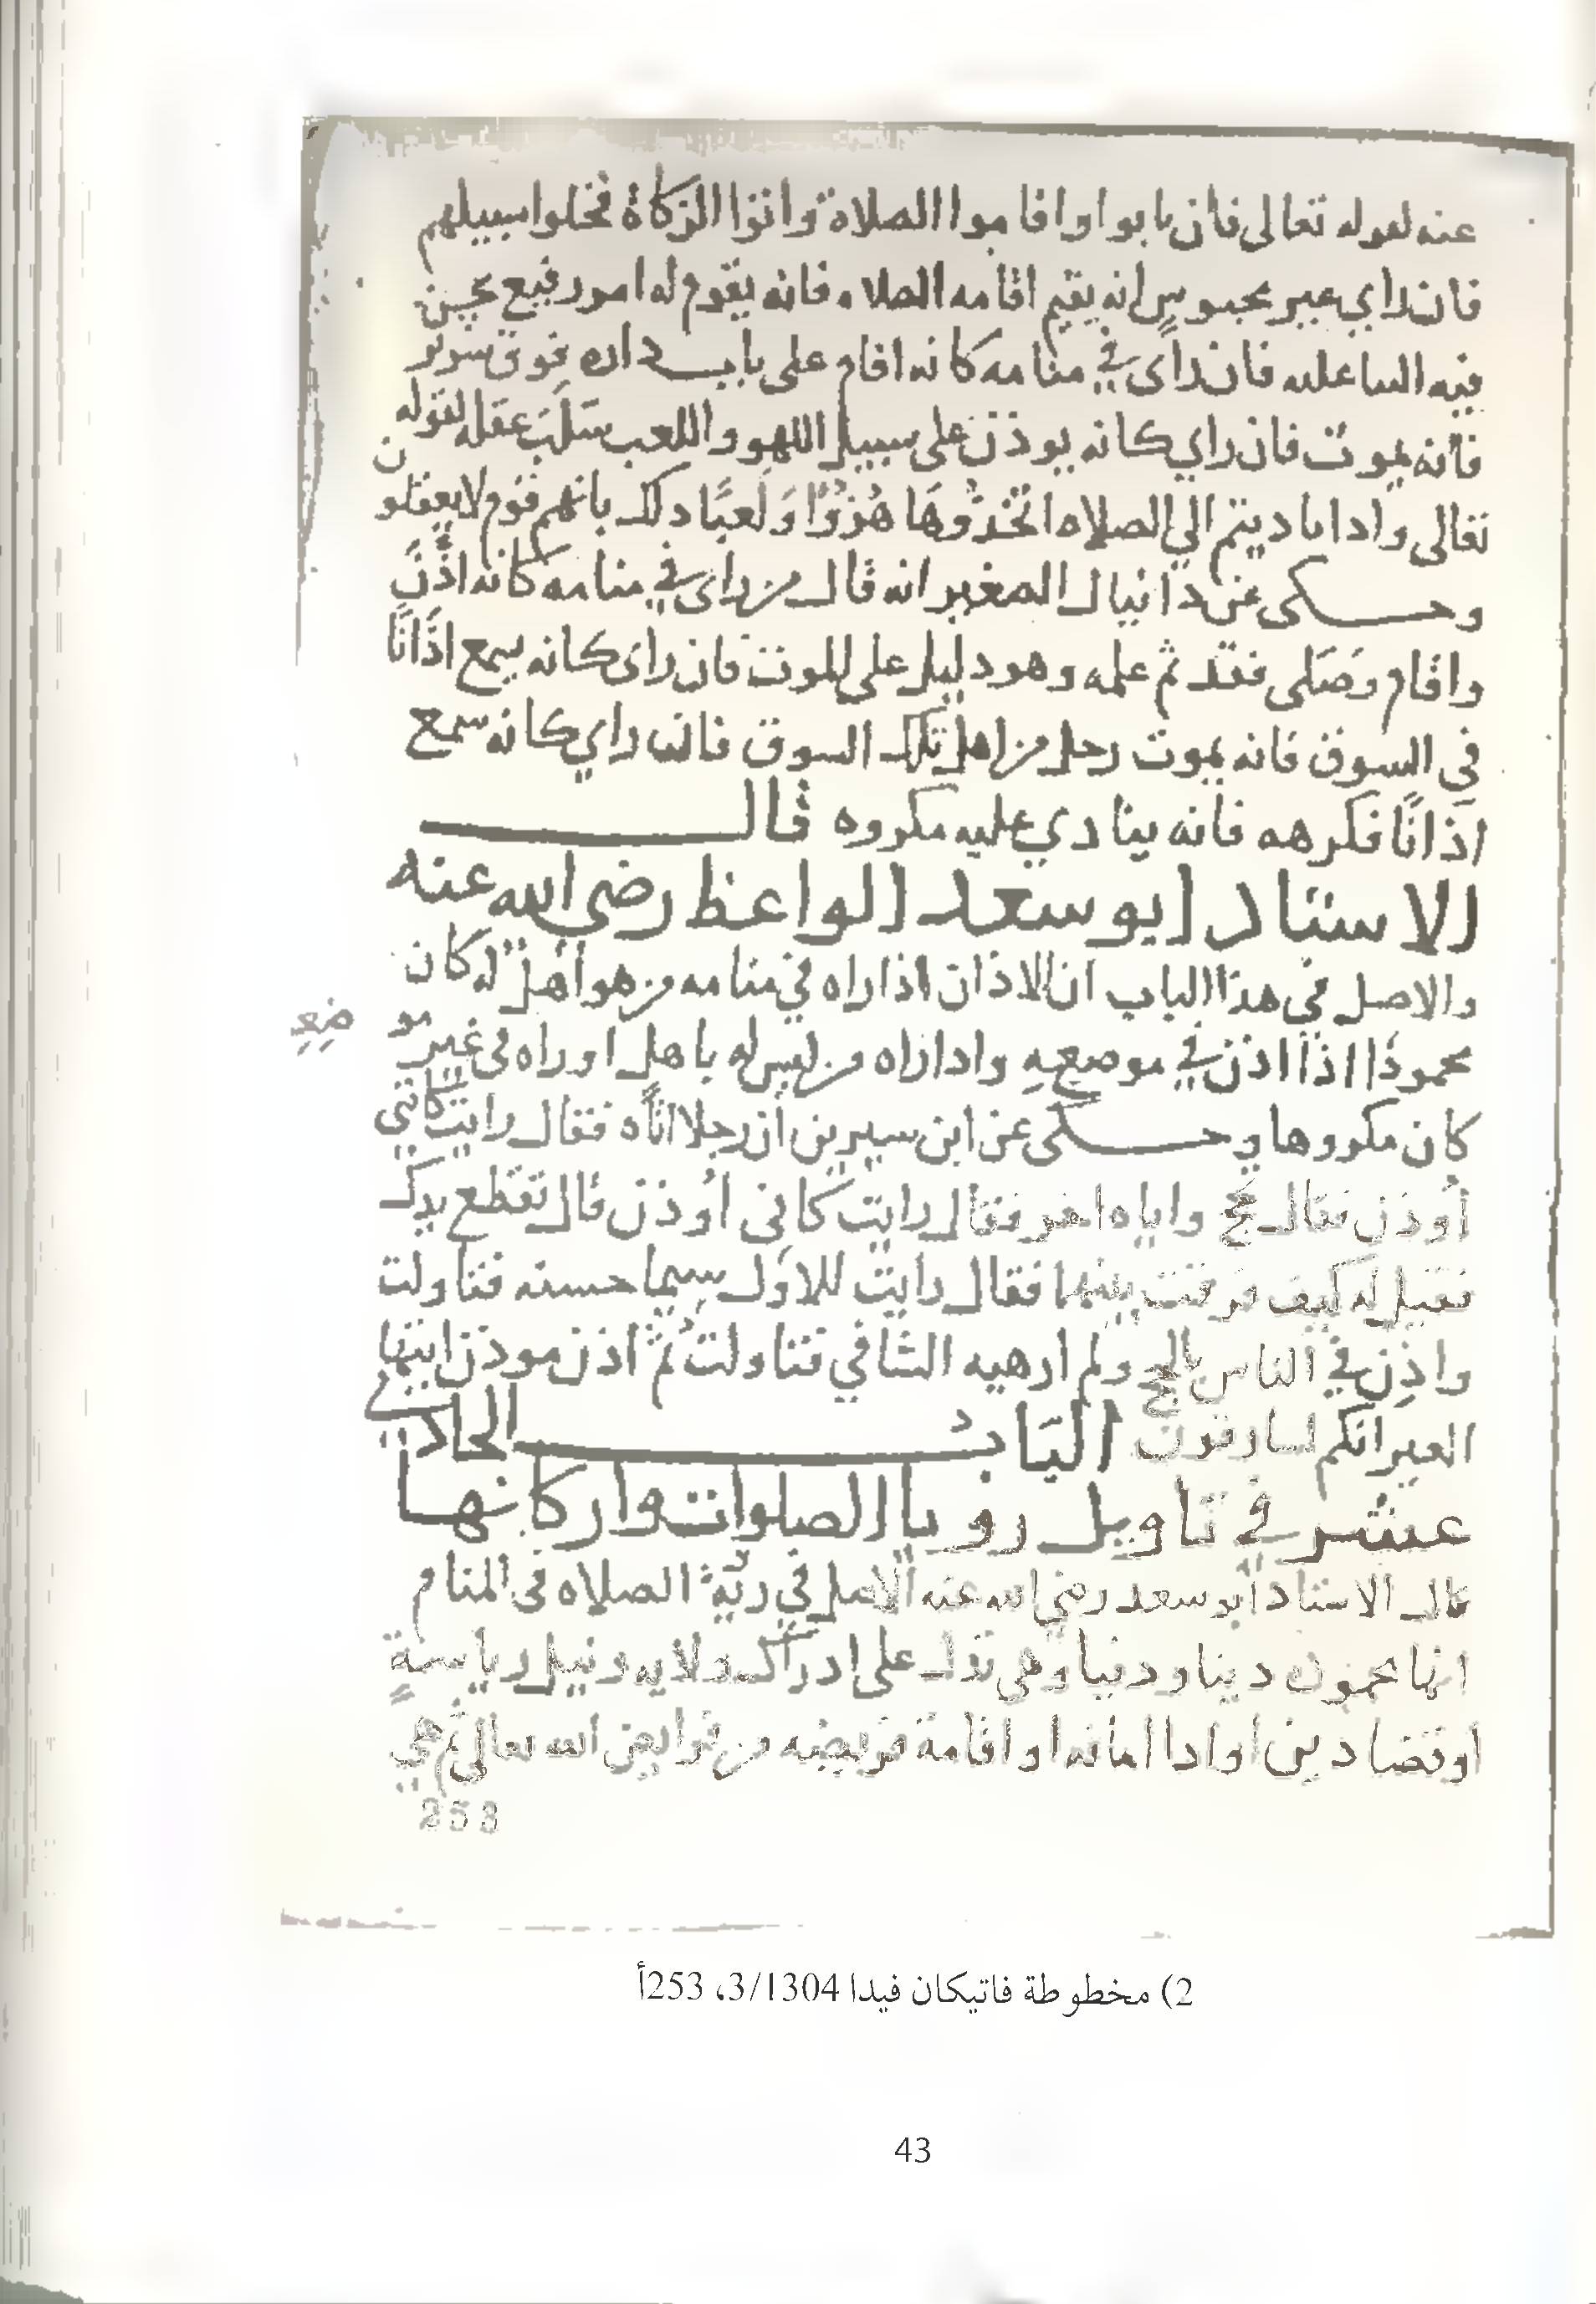 عنه لقوله تعالى فان تابوا واقاموا الصلاة واتوا الزكاة فخلوا سبيلهم
فان راي غير محبوس انه يقيم اقامه الصلاه فانه يقوم له امور رفيع يحسن
فيه الثنا عليه فان راى في منامه كانه اقام على باب داره فوق سرير
فانه يموت فان راي كانه يوذن على سبيل اللهو واللعب سلب عقله لقوله
تعالى واذا ناديتم الي الصلاه اتخذوها هزوًا ولعبًا ذلك بانهم قوم لا يعقلون
وحكى عن دانيال الصغير انه قال من راى في منامه كانه اذن
واقام وصلى فقد تم علمه وهو دليل على الموت فان راى كانه يسمع اذانًا
في السوق فانه يموت رجل من اهل تلك السوق فان راي كانه سمع
اذانًا فكرهه فانه ينادي عليه مكروه قال
الاستاد ابو سعد الواعظ رضي الله عنه
والاصل في هذا الباب ان الاذان اذا راه في منامه من هو اهل له كان
محمودًا اذا اذن في موضعه واذا راه من ليس له باهل او راه في غير موضعه
كان مكروها وحكى عن ابن سيرين ان رجلا اتاه فقال رايت كاني
أوذن فقال تحج واتاه اخر فقال رايت كاني أوذن قال تقطع يدك
فقيل له كيف فرقت بينهما فقال رايت للاول سيما حسنه فتاولت
واذن في الناس بالحج ولم ارهيه الثاني فتاولت ثم اذن موذن ايتها
العير انكم لسارقون الباب الحادي
عشر في تاويل رويا الصلوات واركانها
قال الاستاد أبو سعد رضي الله عنه الاصل في رية الصلاه في المنام
انها محموده دينا ودنيا وهي تدل على ادراك ولايه ونيل رياسة
او قضا دين او ادا امانه او اقامة فريضه من فرايض الله تعالى ثم هي
253
2) مخطوطة فاتيكان فيدا 3/1304، 253أ
43